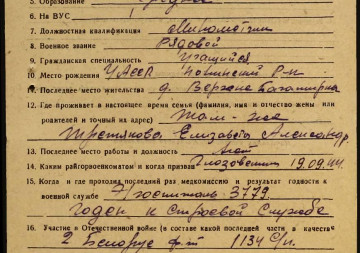 5. Образование Среднее
6. На ВУС 1
7. Должностная квалификация Минометчик
8. Военное звание Рядовой
9. Гражданская специальность Учащийся
10. Место рождения УАССР р-н
11. Последнее место жительства д. Верхняя
12. Где проживает в настоящее время семья (фамилия, имя и отчество жены или
родителей и точный их адрес) Там-же
Третьякова Елизавета Александр.
13. Последнее место работы и должность
14. Каким райгорвоенкоматом и когда призван Глазовским 19.09.44.
15. Когда и где проходил последний раз медкомиссию и результат годности к
военной службе Э/госпиталь 3779.
годен к строевой службе
16. Участие в Отечественной войне (в составе какой последней части в качестве
2 Белорус фр-т 1134 С/п.